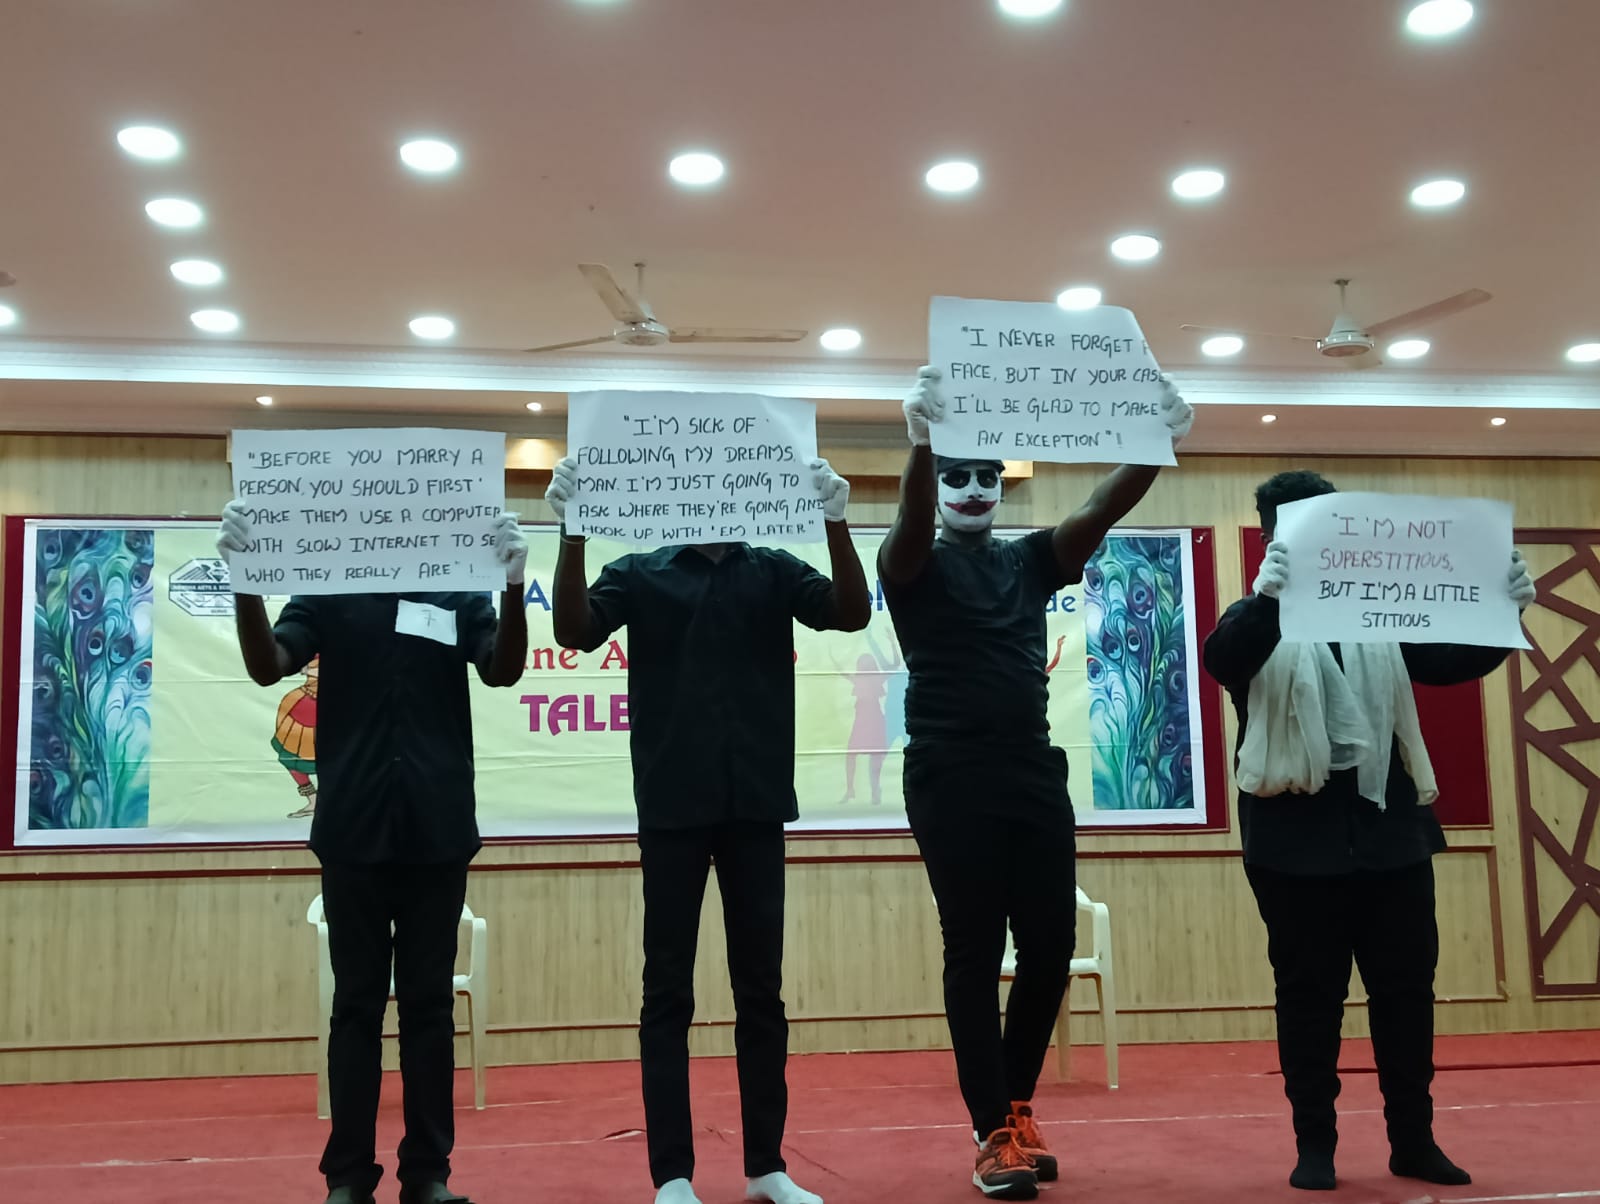 "BEFORE YOU MARRY A
PERSON, YOU SHOULD FIRST
MAKE THEM USE A COMPUTER
WITH SLOW INTERNET TO SE
WHO THEY REALLY ARE" !...
"I'M SICK OF
FOLLOWING MY DREAMS,
MAN. I'M JUST GOING TO
ASK WHERE THEY'RE GOING AND
HOOK UP WITH 'EM LATER"
"I NEVER FORGET
FACE, BUT IN YOUR CASE
I'LL BE GLAD TO MAKE
AN EXCEPTION"!
"I'M NOT
SUPERSTITIOUS,
BUT I'M A LITTLE
STITIOUS
7
A
de
ine A
TALE